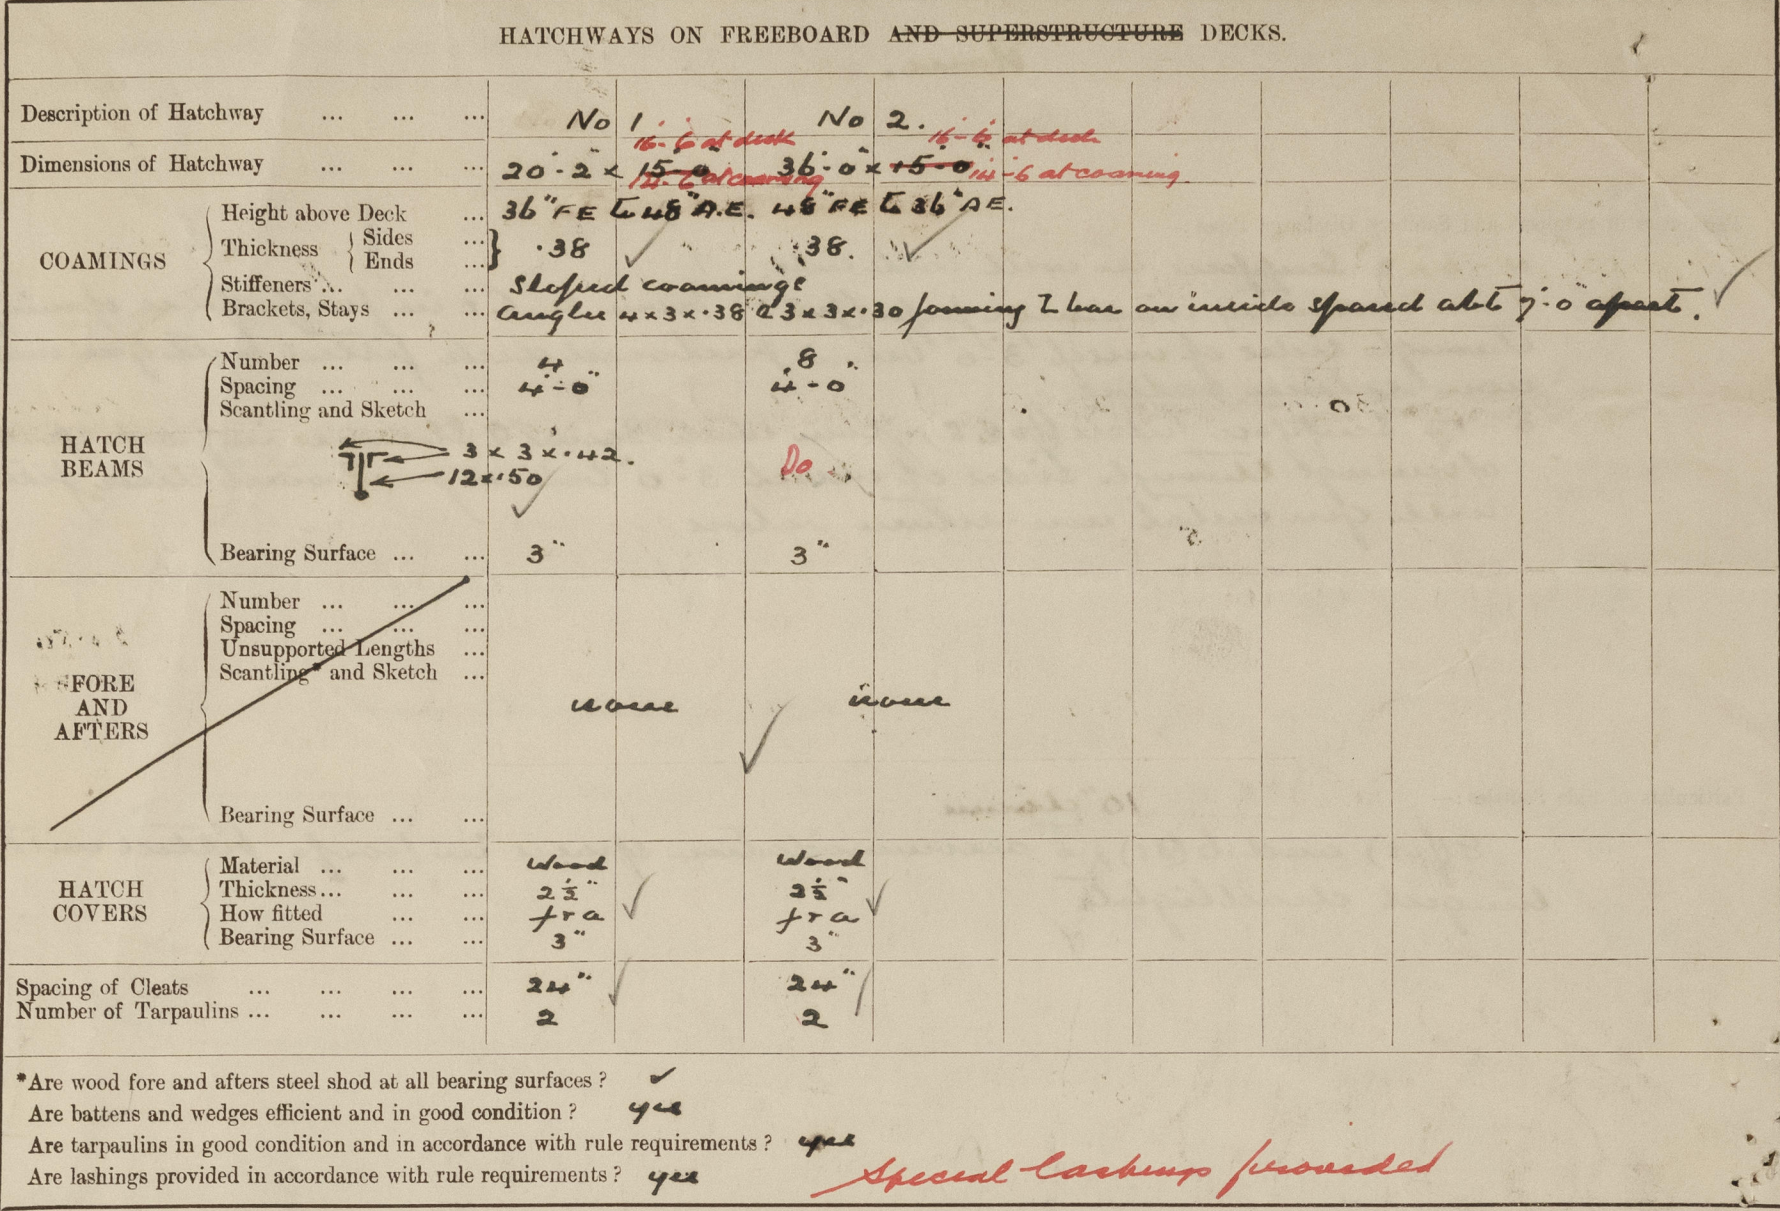 HATCHWAYS ON FREEBOARD AND SUPERSTRUCTURE DECKS.
Description of Hatchway ... ... ... No 1 No 2.
16'-6 at deck 16'-6 at deck
Dimensions of Hatchway ... ... ... 20'-2" x 15'-0" 36'-0" x 15'-0"
14'-6 at coaming 14'-6 at coaming.
COAMINGS
Height above Deck ... 36" FE to 48" A.E. 48" FE to 36" AE.
Thickness { Sides ... } .38 .38.
Ends ...
Stiffeners ... ... ... Sloped coamings
Brackets, Stays ... ... angles 4x3x.38 & 3x3x.30 forming Z bar on inside spaced abt 7'-0" apart.
HATCH BEAMS
Number ... ... ... 4 8
Spacing ... ... ... 4'-0" 4'-0"
Scantling and Sketch ...
3 x 3 x .42.
12 x .50
Do
Bearing Surface ... ... 3" 3"
FORE AND AFTERS
Number ... ... ...
Spacing ... ... ...
Unsupported Lengths ...
Scantling* and Sketch ...
none none
Bearing Surface ... ...
HATCH COVERS
Material ... ... ... Wood Wood
Thickness ... ... ... 2½" 2½"
How fitted ... ... f & a f & a
Bearing Surface ... ... 3" 3"
Spacing of Cleats ... ... ... ... 24" 24"
Number of Tarpaulins ... ... ... ... 2 2
*Are wood fore and afters steel shod at all bearing surfaces ? ✓
Are battens and wedges efficient and in good condition ? yes
Are tarpaulins in good condition and in accordance with rule requirements ? yes
Are lashings provided in accordance with rule requirements ? yes Special lashings provided